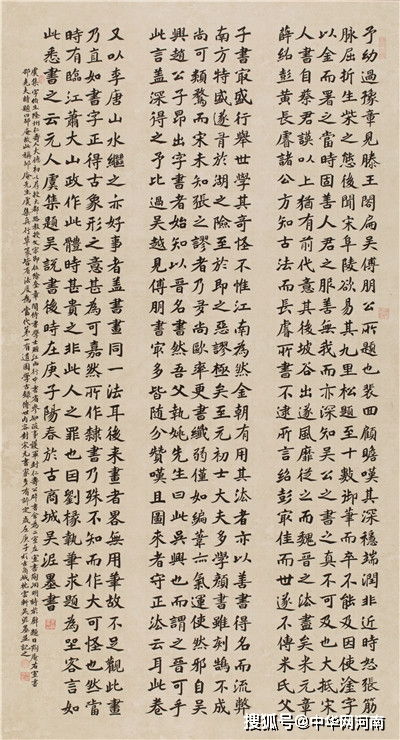 予幼過豫章見滕王閣扁吳傅朋公所題也裴回顧瞻嘆其深穩端潤非近時怒張筋
脉屈折生柴之態後聞宋阜陵欲易其九里松題至十數御筆而卒不能及因使塗字
以金而署之當時固善人君之服善無我而亦深知吳公之書之真不可及也大抵宋
人書自蔡君謨以上猶有前代意其後坡谷出遂風靡從之而魏晉之法盡矣米元章
薛紹彭黃長睿諸公方知古法而長睿所書不逮所言紹彭㝡佳而世遂不傳米氏父
子書㝡盛行舉世學其奇怪不惟江南為然金朝有用其法者亦以善書得名而流弊
南方特盛遂有於湖之險至於即之之惡謬極矣至元初士大夫多學顏書雖刻鵠不成
尚可類鶩而宋末知張之謬者乃多尚歐率更書纖弱僅如編葦亦氣運使然邪自吳
興趙公子昂出字書者始知以晉名書然吾父執姚先生曰此吳興也而謂之晉可乎
此言蓋深得之予比過吳越見傅朋書㝡多皆隨分贊嘆且圖來者守正法云耳此卷
又以李唐山水繼之亦好事者蓋書畫同一法耳後來畫者略無用筆故不足觀此畫
乃直如書字正得古象形之意甚為可嘉然所作隸書乃殊不知而作大可怪也然當
時有臨江蕭大山政作此體時甚貴之非此人之罪也因劉掾執筆求題為坐客言如
此悉書之云元人虞集題吳說書後時在庚子陽春於古商城吳泥墨書
虞集字伯生
搜狐号@中华网河南